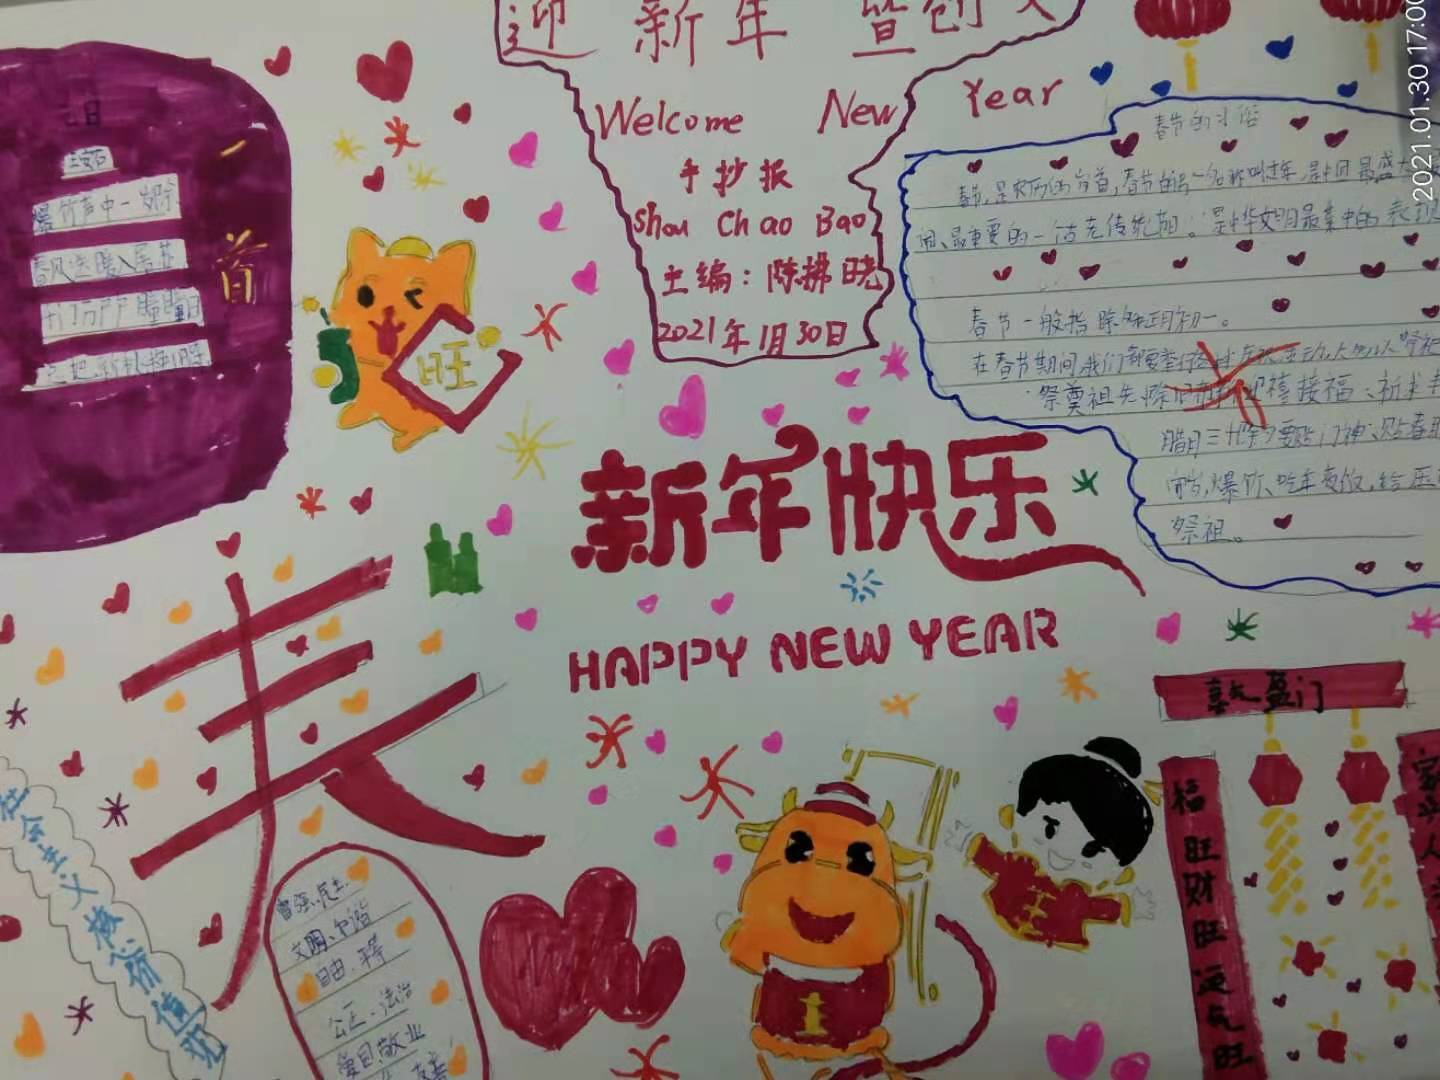 迎 新年 暨创文
Welcome New Year
手抄报
Shou Chao Bao
主编：陈拂晓
2021年1月30日
2021.01.30 17:00
元日
爆竹声中一岁除
春风送暖入屠苏
千门万户曈曈日
总把新桃换旧符
首
旺
新年快乐
HAPPY NEW YEAR
春节的习俗
春节,是农历的岁首,春节的另一名称叫过年,是中国最盛大
闹、最重要的一个古老传统节日。是中华文明最集中的表现
春节一般指除夕和正月初一。
在春节期间我们都要举行各种庆祝活动,大多以祭祀
祭奠祖先除旧布新、迎禧接福、祈求丰
腊月三十(除夕)要贴门神、贴春联
守岁,爆竹、吃年夜饭,给压
祭祖。
春
社会主义核心价值观
富强.民主.
文明.和谐
自由.平等
公正.法治
爱国.敬业
友善
喜气盈门
福旺财旺运气旺
家兴人